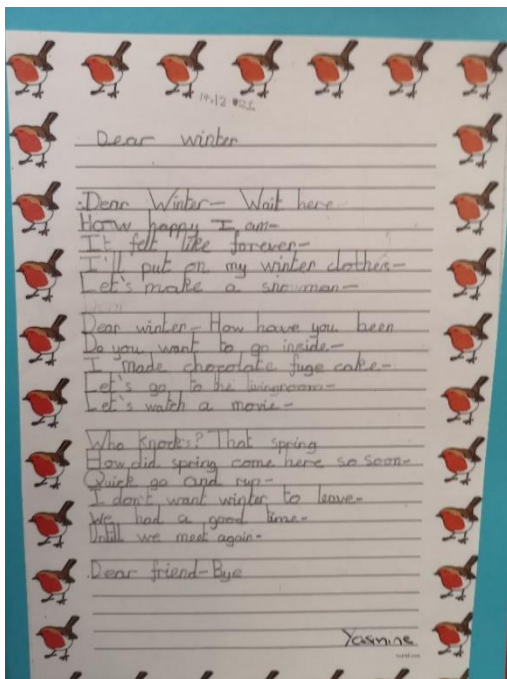 14.12.21
Dear winter
Dear Winter- Wait here
How happy I am-
It felt like forever-
I'll put on my winter clothes-
Let's make a snowman-
Dear winter- How have you been
Do you want to go inside-
I made chocolate fuge cake-
Let's go to the livingroom-
Let's watch a movie-
Who knocks? That spring
How did spring come here so soon-
Quick go and run-
I don't want winter to leave-
We had a good time-
Untill we meet again-
Dear friend-Bye
Yasmine